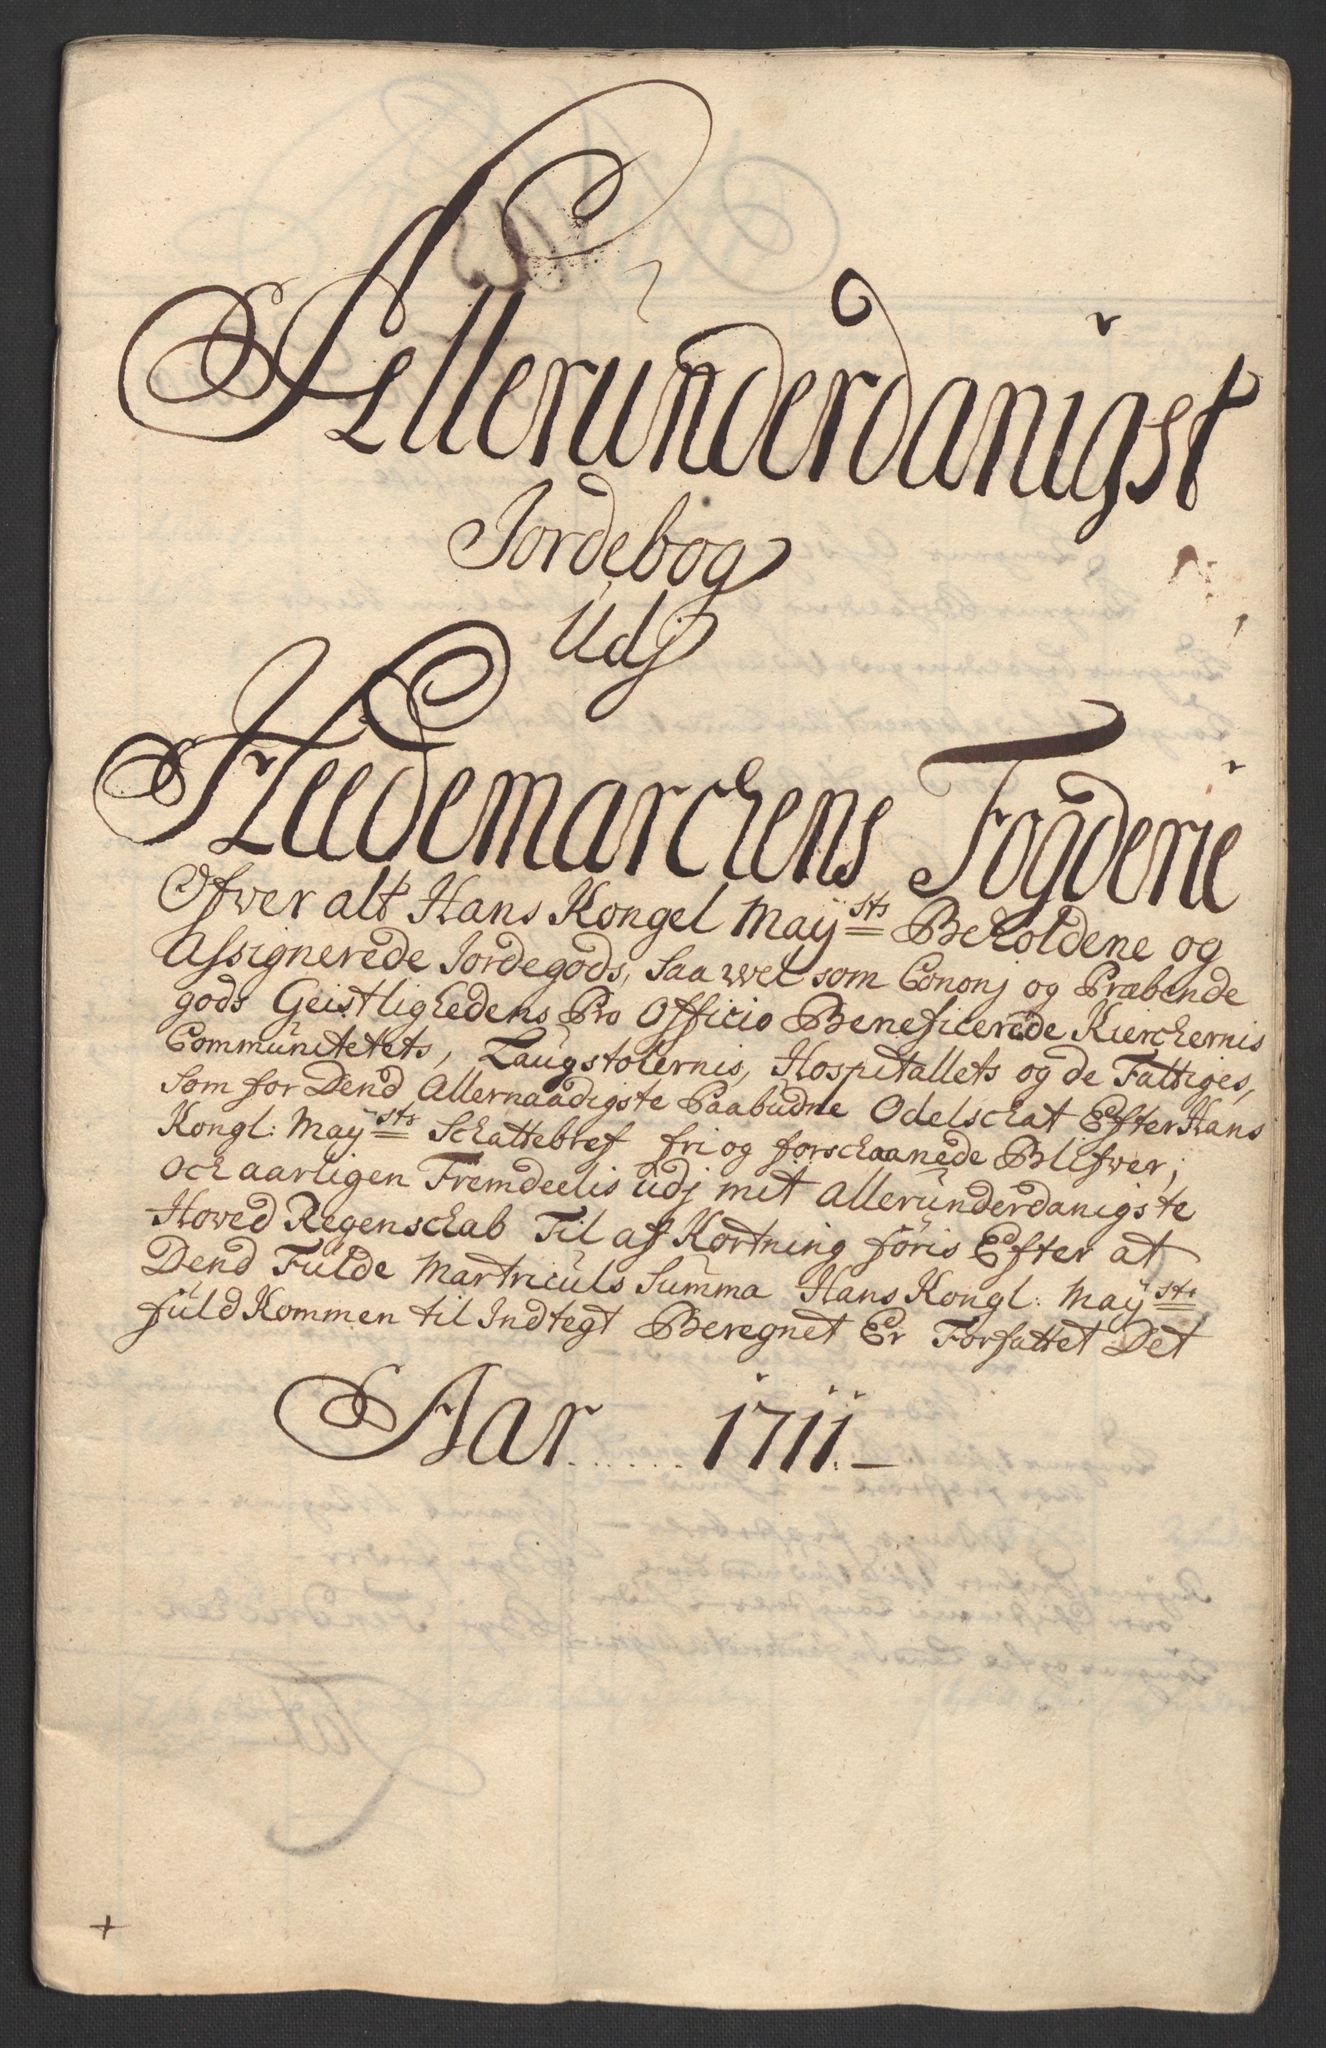 Allerunderdanigst
Jordebog
Udj
Heedemarchens Fogderie
Ofver alt Hans Kongel Maÿsts Beholdene og
Assignerede Jordegods, saa wel som Cononj og Præbende
gods Geistlighedens Pro Officio Beneficerede Kierchernis
Communitetets, Laugstolernis, Hospitallets og de Fattiges,
som for Dend Allernaadigste Paabudne Odelschat Efter Hans
Kongl: Maÿsts Schattebref fri og forschaanede Blifver,
och aarligen Fremdeelis udj mit allerunderdanigste
Hoved Regenschab Til af Kortning føris Efter at
Dend Fulde Martriculs Summa Hans Kongl: Maÿsts
fuld Kommen til Indtegt Beregnet Er Forfattet Det
Aar 1711.